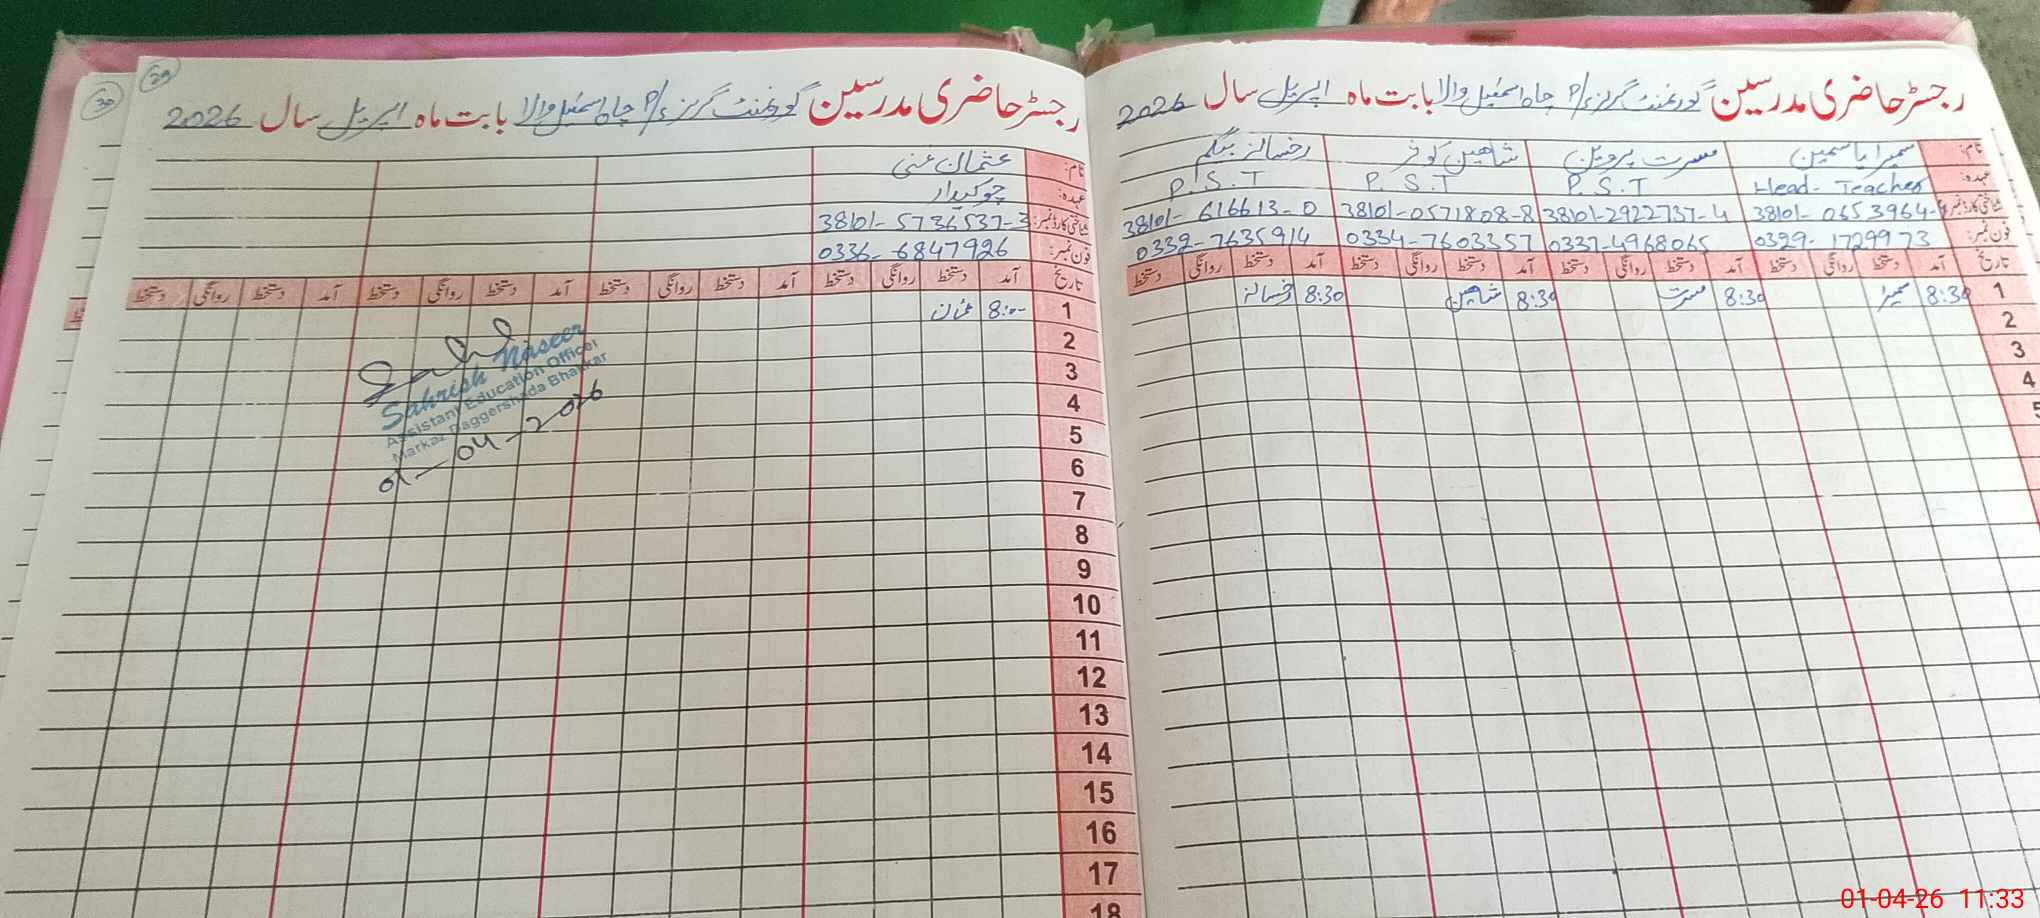 رجسٹر حاضری مدرسین گورنمنٹ گرلز P/ چاہ اسمٰعیل والا بابت ماہ اپریل سال 2026
نام: سمیرا یاسمین مسرت پروین شاہین کوثر رخسانہ بیگم
عہدہ: Head-Teacher P.S.T P.S.T P.S.T
شناختی کارڈ نمبر: 38101-0653964- 38101-2922737-4 38101-0571808-8 38101-616613-0
فون نمبر: 0329-1729973 0337-4968065 0334-7603357 0332-7635914
تاریخ آمد دستخط روانگی دستخط آمد دستخط روانگی دستخط آمد دستخط روانگی دستخط آمد دستخط روانگی دستخط
1 8:30 سمیرا 8:30 مسرت 8:30 شاہین 8:30 رخسانہ
2
3
4
5
29
30
رجسٹر حاضری مدرسین گورنمنٹ گرلز P/ چاہ اسمٰعیل والا بابت ماہ اپریل سال 2026
نام: عثمان غنی
عہدہ: چوکیدار
شناختی کارڈ نمبر: 38101-5736537-3
فون نمبر: 0336-6847926
تاریخ آمد دستخط روانگی دستخط آمد دستخط روانگی دستخط آمد دستخط روانگی دستخط آمد دستخط روانگی دستخط
1 8:00 عثمان
2
3
4
5
6
7
8
9
10
11
12
13
14
15
16
17
18
Sahrish Naseer
Assistant Education Officer
Markaz Daggershada Bhakkar
01-04-2026
01-04-26 11:33